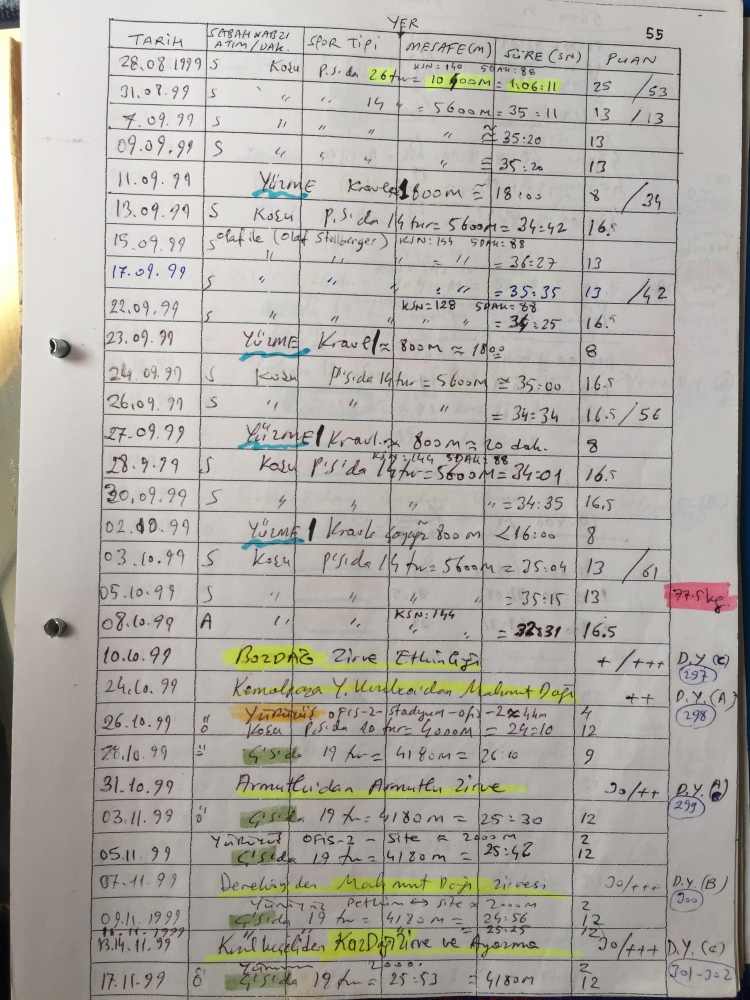 YER
55
TARİH SABAH NABZI ATIM/DAK. SPOR TİPİ MESAFE(M) SÜRE(SN) PUAN
KSN:140 5DAK:88
28.08.1999 S Koşu P.Sida 26 tur = 10400m = 1:06:11 25 /53
31.08.99 S " " 14 " = 5600m = 35:11 13 /13
7.09.99 S " " " " ≅ 35:20 13
09.09.99 S " " " " ≅ 35:20 13
11.09.99 Yüzme Kravl 1800m ≅ 18:00 8 /34
13.09.99 S Koşu P.Sida 14 tur = 5600m = 34:42 16.5
Olaf ile (Olaf Stallberger) KSN:144 5DAK:88
15.09.99 S " " = " = 36:27 13
17.09.99 S " " " " = 35:35 13 /42
KSN=128 5DAK:88
22.09.99 S " " " " = 34:25 16.5
23.09.99 Yüzme Kravl ≈ 800m ≈ 1800 8
24.09.99 S Koşu P.Sida 14 tur = 5600m ≅ 35:00 16.5
26.09.99 S " " " = 34:34 16.5/56
27.09.99 Yüzme Kravl ≈ 800m ≈ 20 dak. 8
KSN:144 5DAK:88
28.9.99 S Koşu P.Sida 14 tur = 5600m = 34:01 16.5
30.09.99 S " " " = 34:35 16.5
02.10.99 Yüzme Kravl 800m <16:00 8
03.10.99 S Koşu P.Sida 14 tur = 5600m = 35:04 13 /61
05.10.99 S " " " = 35:15 13 77.5kg
KSN:144
08.10.99 A " " " " = 32:31 16.5
10.10.99 BOZDAĞ Zirve Etkinliği +/+++ D.Y.(C) 297
24.10.99 Kemalpaşa Y. Kızılca'dan Mahmut Dağı ++ D.Y.(A) 298
Yürüyüş OFİS-2-Stadyum-Ofis-2≈4km 4
26.10.99 ö Koşu P.Sida 10 tur = 4000m = 24:10 12
28.10.99 Ç.Sida 19 tur = 4180m = 26:10 9
31.10.99 Armutlu'dan Armutlu Zirve 30/++ D.Y. 299
03.11.99 ö Ç.Sida 19 tur = 4180m = 25:30 12
Yürüyüş OFİS-2 - Site ≈ 2000m 2
05.11.99 Ç.Sida 19 tur = 4180m = 25:42 12
07.11.99 Mahmut Dağı zirvesi 30/+++ D.Y.(B) 300
Yürüyüş Petkim ↔ site ≈ 2000m 2
09.11.1999 Ç.Sida 19 tur = 4180m = 24:56 12
11.11.1999 = 25:25 12
13.14.11.99 Kızılkeçili'den KazDağı Zirve ve Ayazma 30/+++ D.Y.(C) 301-302
Yürüyüş 2000. 2
17.11.99 ö Ç.Sida 19 tur = 25:53 = 4180m 12